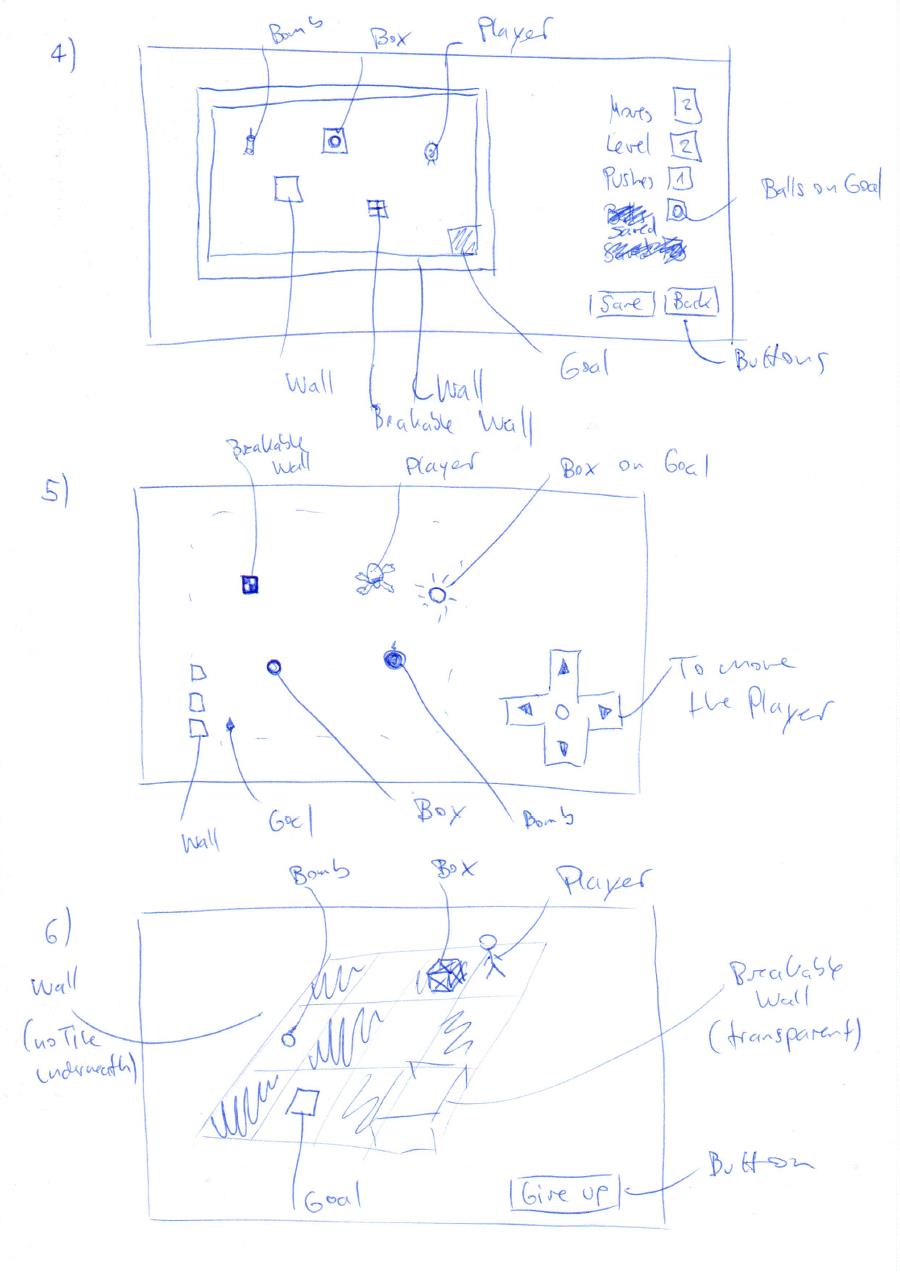 4)
Bomb
Box
Player
Moves 2
Level 2
Pushes 1
0
Saved
Balls on Goal
Save
Back
Buttons
Wall
Wall
Goal
Breakable Wall
5)
Breakable
Wall
Player
Box on Goal
To move
the Player
Wall
Goal
Box
Bomb
6)
Bomb
Box
Player
Wall
(no Tile
underneath)
Breakable
Wall
(transparent)
Goal
Give up
Button